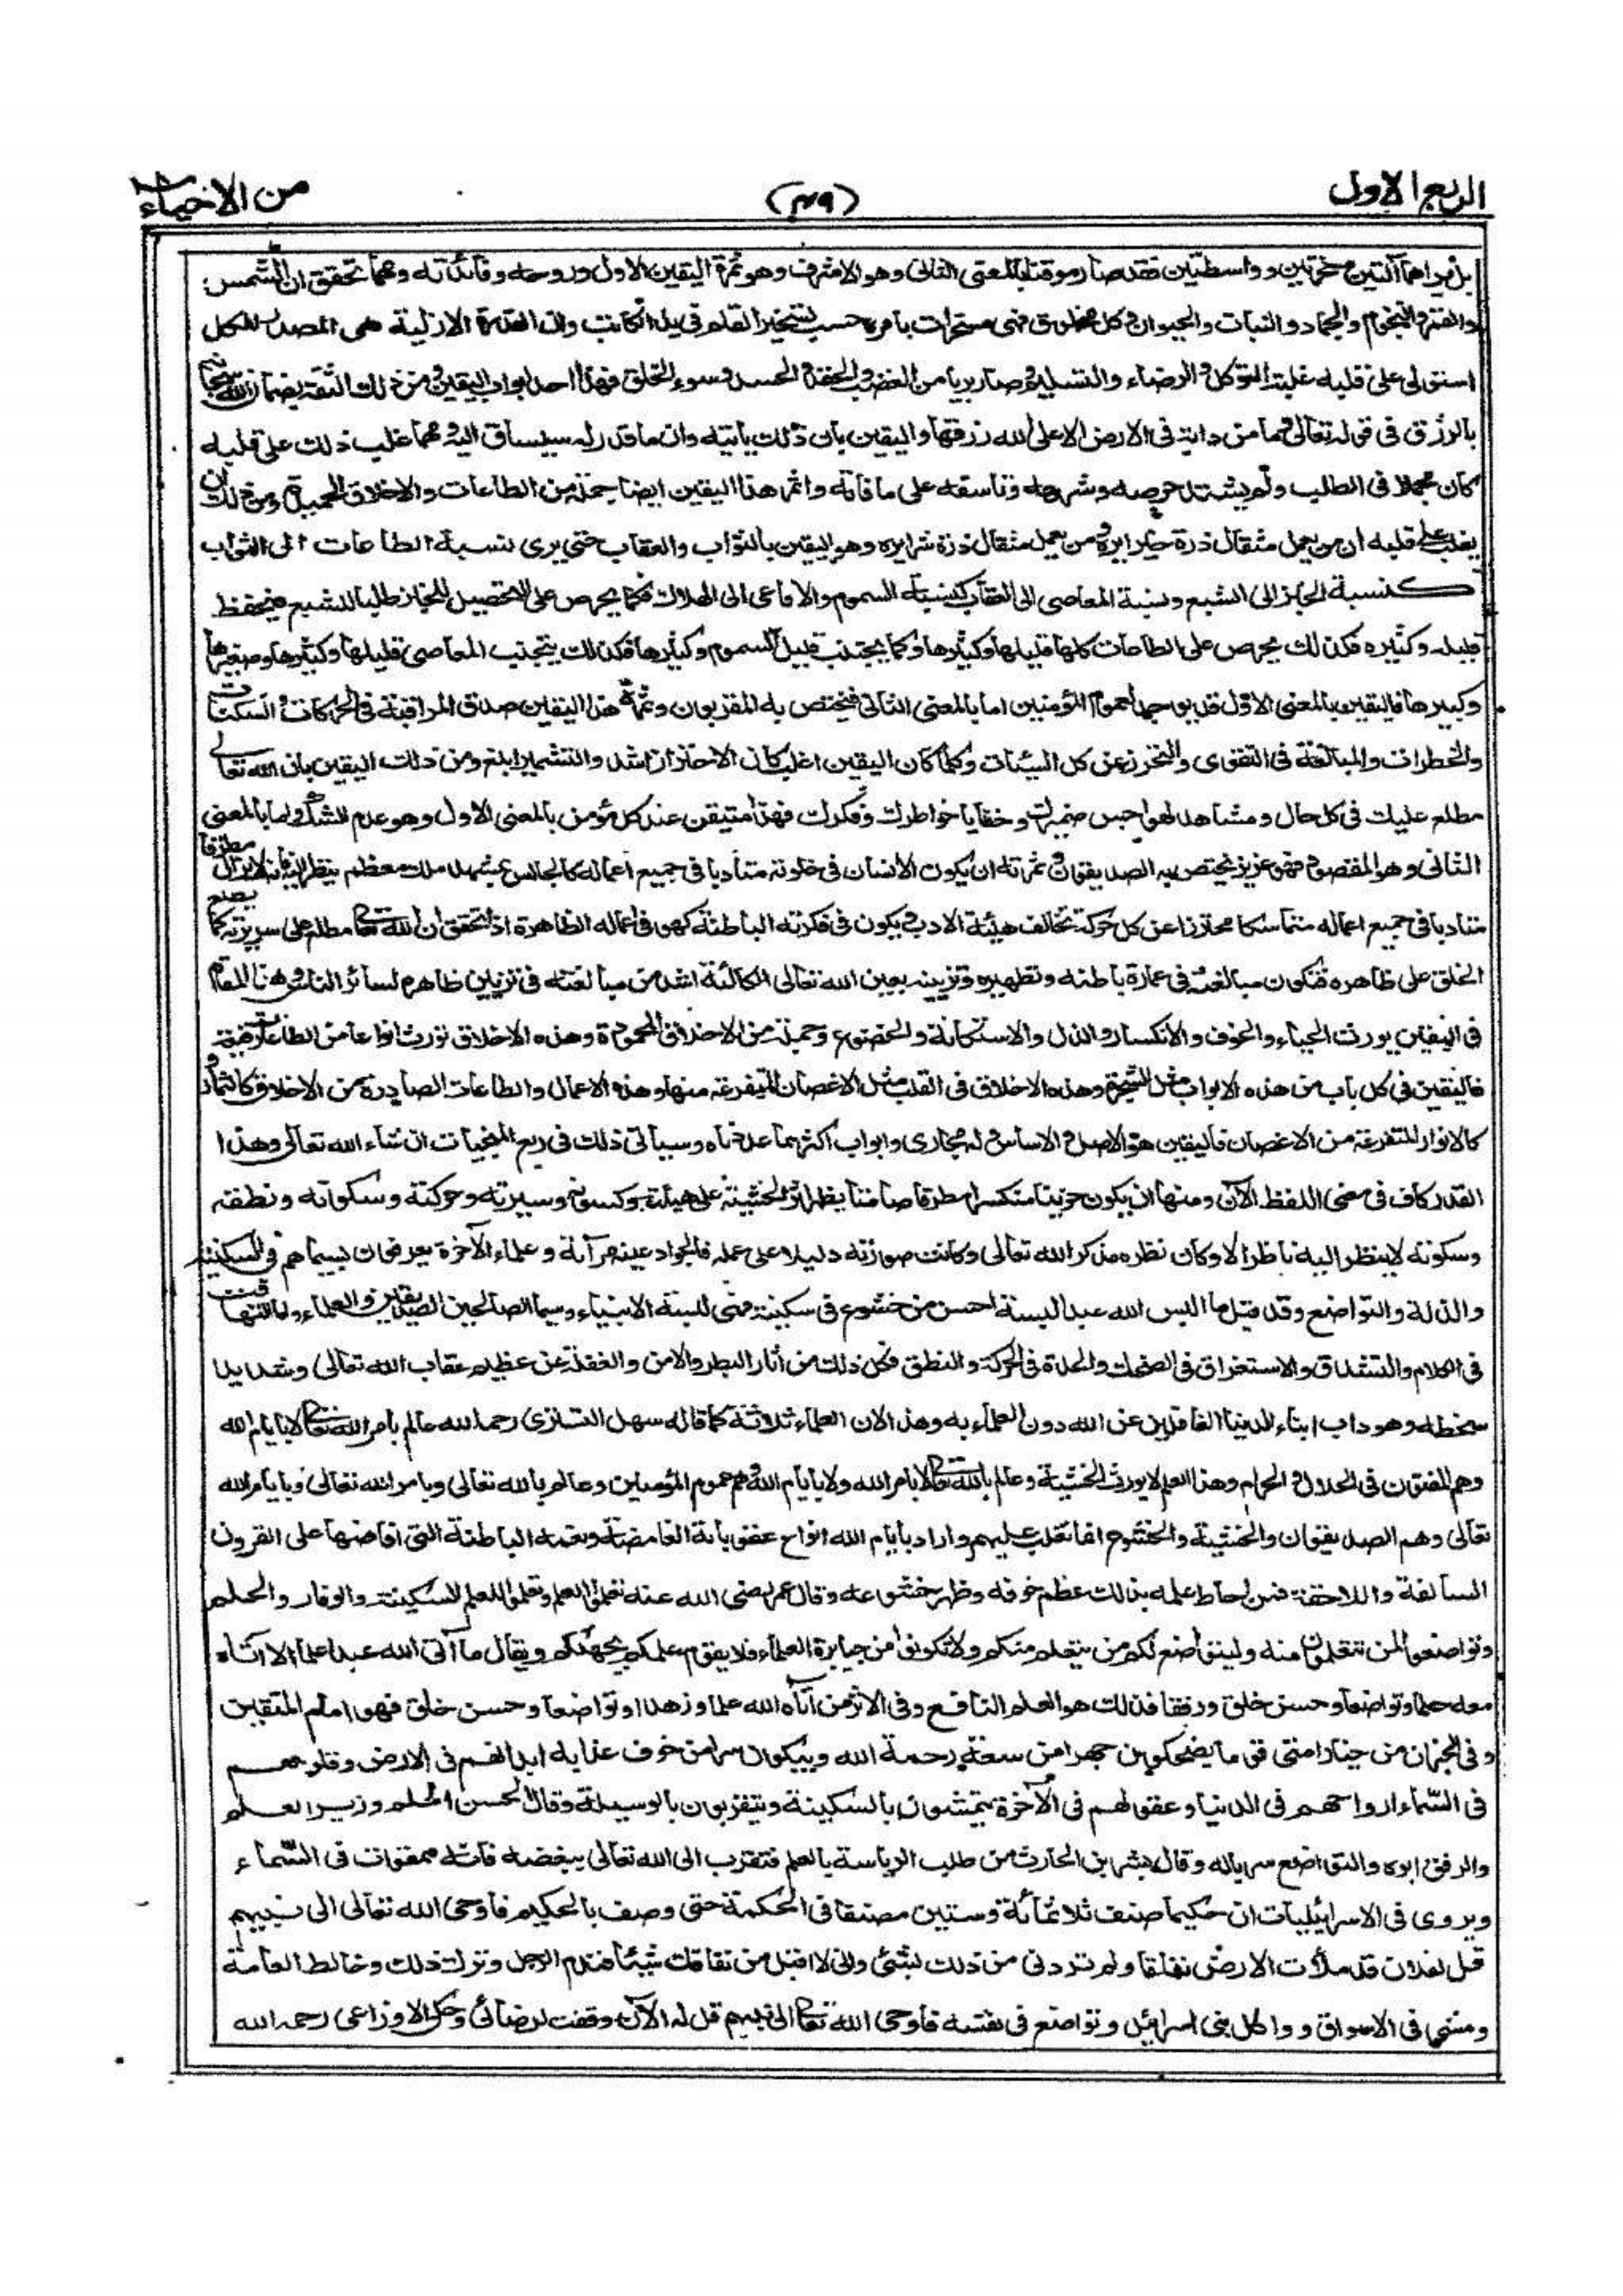 الربع الاول
(٤٩)
من الاحياء
بل يراهما آلتين مسخرتين وواسطتين فقد صار موقنا بالمعنى الثانى وهو الاشرف وهو ثمرة اليقين الاول وروحه وفائدته ومهما تحقق ان الشمس
والقمر والنجوم والجماد والنبات والحيوان وكل مخلوق فهى مسخرات بامره حسب تسخير القلم فى يد الكاتب وان القدرة الازلية هى المصدر للكل
استولى على قلبه غلبة التوكل والرضاء والتسليم وصار بريا من الغضب والحقد والحسد وسوء الخلق فهذا احد ابواب اليقين ومن ذلك الثقة بضمان الله سبحانه
بالرزق فى قوله تعالى وما من دابة فى الارض الا على الله رزقها واليقين بان ذلك ياتيه وان ما قدر له سيساق اليه ومهما غلب ذلك على قلبه
كان مجملا فى الطلب ولم يشتد حرصه وشرهه وتاسفه على ما فاته واثمر هذا اليقين ايضا جملة من الطاعات والاخلاق الحميدة ومن ذلك ان
يغلب على قلبه ان من يعمل مثقال ذرة خيرا يره ومن يعمل مثقال ذرة شرا يره وهو اليقين بالثواب والعقاب حتى يرى نسبة الطاعات الى الثواب
كنسبة الخبز الى الشبع ونسبة المعاصى الى العقاب كنسبة السموم والافاعى الى الهلاك فكما يحرص على التحصيل للخبز طلبا للشبع فيحفظ
قليله وكثيره فكذلك يحرص على الطاعات كلها قليلها وكثيرها وكما يجتنب قليل السموم وكثيرها فكذلك يجتنب المعاصى قليلها وكثيرها وصغيرها
وكبيرها فاليقين بالمعنى الاول قد يوجد لعموم المؤمنين اما بالمعنى الثانى فيختص به المقربون وثمرة هذا اليقين صدق المراقبة فى الحركات والسكنات
والخطرات والمبالغة فى التقوى والتحرز عن كل السيئات وكلما كان اليقين اغلب كان الاحتراز اشد والتشمير ابلغ ومن ذلك اليقين بان الله تعالى
مطلع عليك فى كل حال ومشاهد لهواجس ضميرك وخفايا خواطرك وفكرك فهذا متيقن عند كل مؤمن بالمعنى الاول وهو عدم الشك واما بالمعنى
الثانى وهو المقصود فهو عزيز يختص به الصديقون وثمرته ان يكون الانسان فى خلوته متأدبا فى جميع اعماله كالجالس بمشهد ملك معظم ينظر اليه فانه لا يزال مطرقا
متادبا فى جميع اعماله متماسكا محترزا عن كل حركة تخالف هيئة الادب ويكون فى فكرته الباطنة كهو فى اعماله الظاهرة اذ يتحقق ان الله تعا مطلع على سريرته كما يطلع
الخلق على ظاهره فتكون مبالغته فى عمارة باطنه وتطهيره وتزيينه بعين الله تعالى الكالئة اشد من مبالغته فى تزيين ظاهره لسائر الناس وهذا المقام
فى اليقين يورث الحياء والخوف والانكسار والذل والاستكانة والخضوع وجملة من الاخلاق المحمودة وهذه الاخلاق تورث انواعا من الطاعات رفيعة
فاليقين فى كل باب من هذه الابواب مثل الشجرة وهذه الاخلاق فى القلب مثل الاغصان المتفرعة منها وهذه الاعمال والطاعات الصادرة من الاخلاق كالثمار و
كالانوار المتفرعة من الاغصان فاليقين هو الاصل والاساس وله مجارى وابواب اكثر مما عددناه وسياتى ذلك فى ربع المنجيات ان شاء الله تعالى وهذا
القدر كاف فى معنى اللفظ الآن ومنها ان يكون حزينا منكسرا مطرقا صامتا يظهر اثر الخشية على هيئته وكسوته وسيرته وحركته وسكونه ونطقه
وسكوته لا ينظر اليه ناظر الا وكان نظره مذكرا لله تعالى وكانت صورته دليلا على عمله فالجواد عينه مرآته وعلماء الآخرة يعرفون بسيماهم فى السكينة
والذلة والتواضع وقد قيل ما البس الله عبدا لبسة احسن من خشوع فى سكينة فهى لبسة الانبياء وسيما الصالحين والصديقين والعلماء واما التهافت
فى الكلام والتشدق والاستغراق فى الضحك والحدة فى الحركة والنطق فكل ذلك من آثار البطر والامن والغفلة عن عظيم عقاب الله تعالى وشديد
سخطه وهو داب ابناء الدنيا الغافلين عن الله دون العلماء به وهذا لان العلماء ثلاثة كما قاله سهل التسترى رحمه الله عالم بامر الله تعا لا بايام الله
وهم المفتون فى الحلال والحرام وهذا العلم لا يورث الخشية وعالم بالله تعا لا بامر الله ولا بايام الله وهم عموم المؤمنين وعالم بالله تعالى وبامر الله تعالى وبايام الله
تعالى وهم الصديقون والخشية والخشوع انما تغلب عليهم واراد بايام الله انواع عقوباته الغامضة ونعمه الباطنة التى افاضها على القرون
السالفة واللاحقة فمن احاط علمه بذلك عظم خوفه وظهر خشوعه وقال عمر رضى الله عنه تعلموا العلم وتعلموا للعلم السكينة والوقار والحلم
وتواضعوا لمن تتعلمون منه وليتواضع لكم من يتعلم منكم ولا تكونوا من جبابرة العلماء فلا يقوم علمكم بجهلكم ويقال ما آتى الله عبدا علما الا آتاه
معه حلما وتواضعا وحسن خلق ورفقا فذلك هو العلم النافع وفى الاثر من آتاه الله علما وزهدا وتواضعا وحسن خلق فهو امام المتقين
وفى الخبر ان من خيار امتى قوما يضحكون جهرا من سعة رحمة الله ويبكون سرا من خوف عذابه ابدانهم فى الارض وقلوبهم
فى السماء ارواحهم فى الدنيا وعقولهم فى الآخرة يتمشون بالسكينة ويتقربون بالوسيلة وقال الحسن الحلم وزير العلم
والرفق ابوه والتواضع سرباله وقال بشر بن الحارث من طلب الرياسة بالعلم فتقرب الى الله تعالى ببغضه فانه ممقوت فى السماء
ويروى فى الاسرائيليات ان حكيما صنف ثلاثمائة وستين مصنفا فى الحكمة حتى وصف بالحكيم فاوحى الله تعالى الى نبيهم
قل لفلان قد ملأت الارض نفاقا ولم تردنى من ذلك بشئ وانى لا اقبل من نفاقك شيئا فندم الرجل وترك ذلك وخالط العامة
ومشى فى الاسواق وواكل بنى اسرائيل وتواضع فى نفسه فاوحى الله تعا الى نبيهم قل له الآن وفقت لرضائى وحكى الاوزاعى رحمه الله